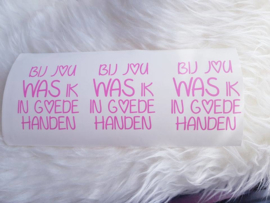 BIJ JOU
WAS IK
IN GOEDE
HANDEN
BIJ JOU
WAS IK
IN GOEDE
HANDEN
BIJ JOU
WAS IK
IN GOEDE
HANDEN